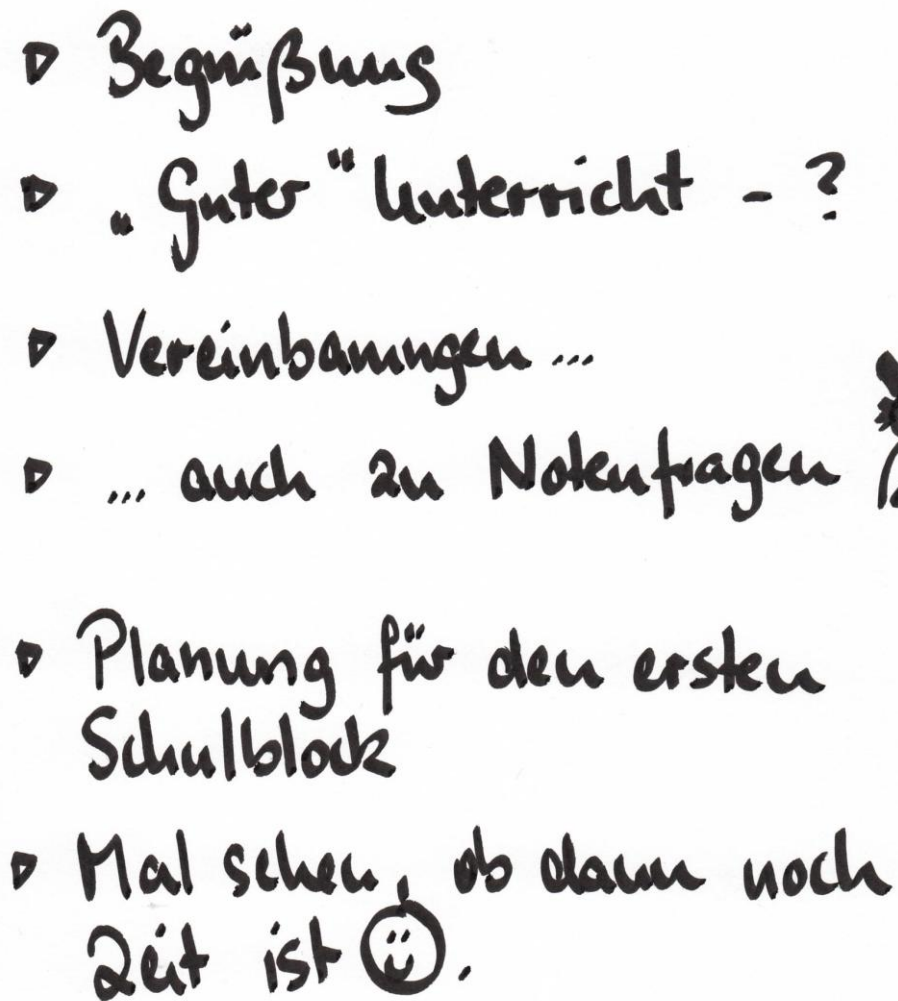 Begrüßung
„Guter" Unterricht - ?
Vereinbarungen ...
... auch zu Notenfragen
Planung für den ersten
Schulblock
Mal sehen, ob dann noch
Zeit ist ☺.